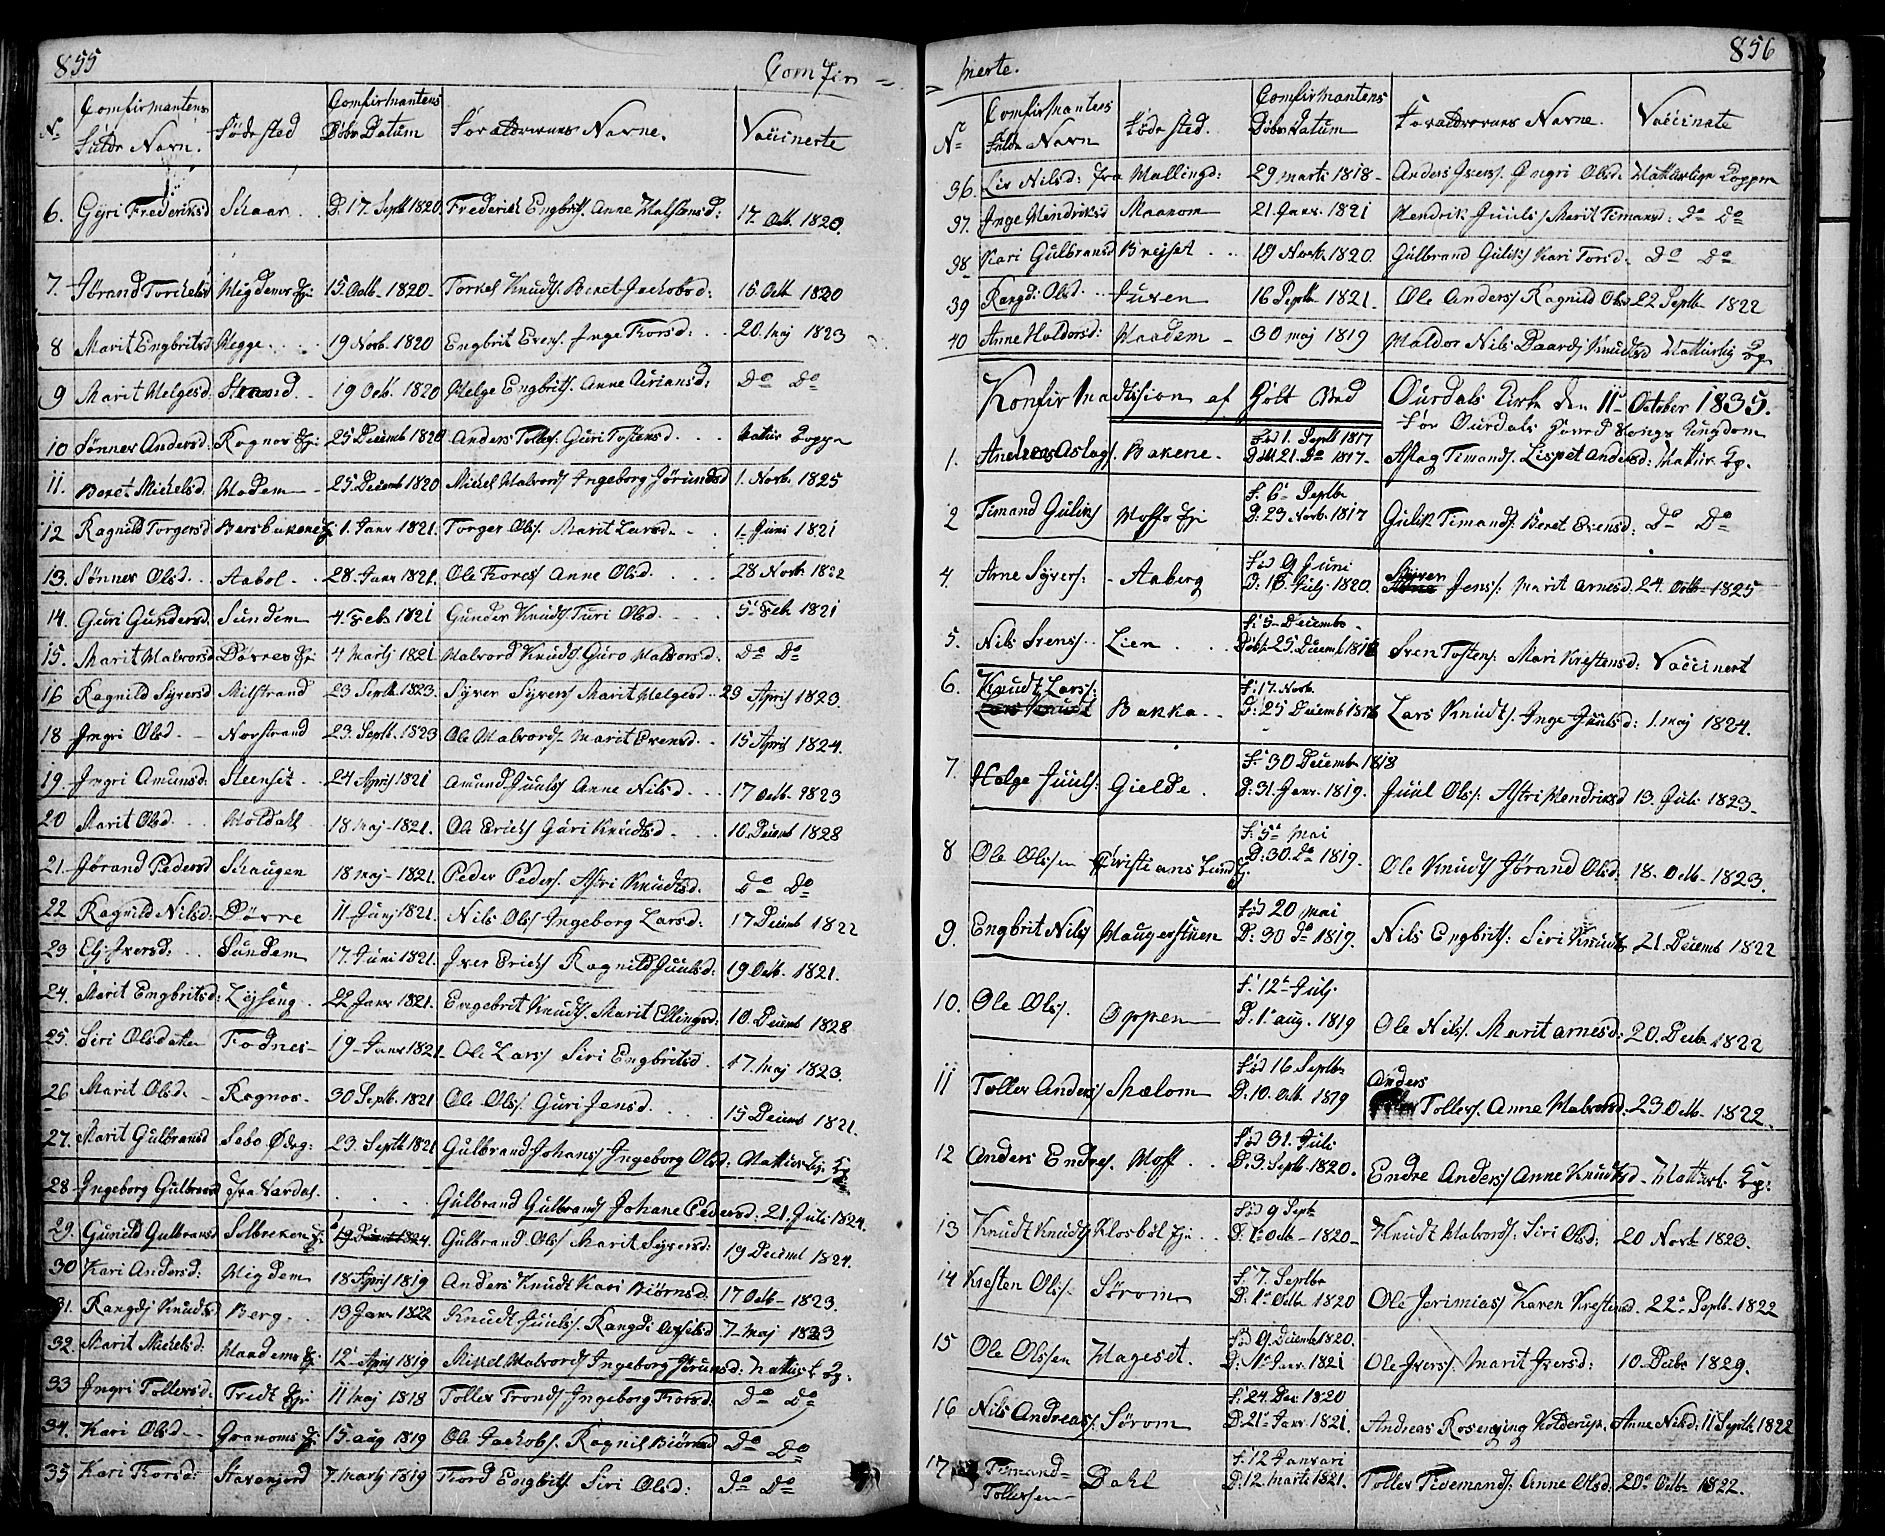 855 Comfir =
No Comfirmantens Fulde Navn. Födested Comfirmantens Döbs Datum Foraldrernes Navne. Vaccinerte
6. Gyri Frederiksd Skaar D. 17. Septb 1820 Frederik Engbrits. Anne Halstensd: 17. Octb. 1820.
7. Jørand Torkelsd Migdems Eje 15. Octb. 1820. Torkel Knuds. Beret Jackobsd: 15 Octb 1820
8 Marit Engbritsd Hegge. 19 Novb. 1820 Engbrit Evens. Inge Thorsd: 20. Maj 1823
9 Marit Helgesd. Strand. 19 Octb. 1820 Helge Engbrits. Anne Ariansd: Do Do
10 Sønnev Andersd: Rognas Eje 25 Decemb 1820 Anders Tolles: Guri Tostensd. Natur Copper
11. Beret Mickelsd. Modem 25. Decemb 1820 Mickel Halvords Ingeborg Jørundsd 1. Novb. 1825
12 Ragnild Torgersd Bersbakene 1. Janr 1821. Torger Ols. Marit Larsd. 1. Juni 1821
13. Sønnev Olsd. Aabol 28. Janr 1821. Ole Thores Anne Olsd. 28 Novb. 1822
14. Guri Gundersd Sundem 4. Feb. 1821 Gunder Knuds Turi Olsd. 5. Feb. 1821
15. Marit Halvorsd Døvres Eje 4 Martj 1821 Halvord Knuds Guro Halvorsd. Do Do
16 Ragnild Syversd Milstrand 23 Septb. 1823. Syver Syvers Marit Helgesd. 29 April 1823.
18 Ingri Olsd. Norstrand 23. Septb. 1823 Ole Halvords. Marit Evensd. 15 April 1824.
19. Ingri Amunsd. Steenset 24 April 1821 Amund Juuls Anne Nilsd. 17 Octb. 1823
20 Marit Olsd. Moldahl 18 maj 1821. Ole Ericks Guri Knudsd. 10. Decemb 1828
21. Jørand Pedersd Skaugen 18 maj 1821. Peder Peders. Astri Knudsd. Do Do
22 Ragnild Nilsd: Dövre 11 Junj 1821. Nils Ols Ingeborg Larsd. 17 Decemb 1822
23 Eli Iversd. Sundem 17. Juni 1821. Iver Ericks Ragnild Juulsd: 19 Octb. 1821.
24. Marit Engbritsd: Lyseng 22 Janr 1821. Engebrit Knuds. Marit Ellingsd: 10. Decemb 1828
25. Siri Olsdatter Fodnes 19 Janr 1821 Ole Lars Siri Engbritsd. 17. Maj 1823.
26 Marit Olsd. Rognas 30 Septb. 1821 Ole Ols. Guri Jensd. 15 Decemb 1821.
27. Marit Gulbransd Sebo Ødeg: 23. Septb 1821 Gulbrand Johans Ingeborg Olsd. Natturlig
28 Ingeborg Gulbrand fra Vardal. Gulbrand Gulbrands Johane Pedersd: 21. Juli 1824.
29. Gunild Gulbransd Solbreken 19 Decemb 1824. Gulbrand Ols Marit Syversd: 19 Decemb 1824.
30 Kari Andersd: Migdem 18 April 1819 Anders Knuds Kari Biørnsd. 17 Octb. 1823.
31. Rangdi Knudsd Berg. 13 Janr 1822 Knudt Juuls. Rangdi 7 Maj 1823
32. Marit Mickelsd. Haadems 12 April 1819 Mikkel Halvords Ingeborg Jørunsd: Natturl
33 Ingri Tollersd: Tredt Eje 11 Maj 1818 Toller Tronds Ingeborg Thorsd: Do Do
34. Kari Olsd. Granoms 15. aug 1819 Ole Jackobs. Ragnil Biørnsd Do Do
35 Kari Thorsd: Stavenjord 7. Martj 1819 Thord Engbrits Siri Olsd: Do Do
= merte. 856
No Comfirmantens Fulde Navn Föde sted. Comfirmantens Döbs Datum Foraldrernes Navne. Vaccinate
36. Liv Nilsd: fra Vallingd: 29 marti 1818 Anders Ivers. Ingri Olsd. Natturlige Copper
37. Inge Hendriksd Maanom 21. Janr. 1821 Hendrik Juuls Marit Timansd: Do Do
38 Kari Gulbransd Brejset 19 Novb. 1820 Gulbrand Guliks Kari Torsd. Do Do
39 Rangdi Olsd. Juven 16 Septb 1821. Ole Anders Ragnild Olsd 22 Septb 1822
40 Anne Haldorsd: Haadem 30 maj 1819 Haldor Nils Baardj Knudsd Natturlig Cop
Konfirmadtision af Holt Ved Ourdals Kirke den 11 October 1835.
for Ourdals Hoved Sogns Ungdom
1. Andreas Aslags. Bakene. Fød 1. Septb 1817 Døbt 21. Do 1817. Aslag Timands. Lispet Andersd: Natur. Cop.
2 Timand Guliks Moffs Eje F. 6 Septbr D: 23. Novb. 1817 Gulik Timands Beret Evensd: Do Do
4. Arne Syvers: Aaberg Fød 9 Juni D: 16. Julj 1820. Syver Jens: Marit Arnesd: 24. Octb. 1825
5. Nils Svens. Lien F. 5 Decembr Døbt 25. Decemb 1818 Sven Tostens: Mari Krestensd: Vaccinert
6. Knudt Lars: Bakka F. 17. Novb. D: 25 Decemb 1818 Lars Knuds. Inge Juulsd: 1. maj 1824.
7. Helge Juuls: Gielde. F. 30 Decemb 1818 D: 31. Janr. 1819. Juul Ols: Astri Hendriksd 13. Juli 1823.
8 Ole Olssen Christians Lund F. 5 mai D: 30. Do 1819. Ole Knuds Jørand Olsd. 18. Octb. 1823.
9. Engbrit Nils Haugerstuen Fød 20 mai D: 30 Do 1819. Nils Engbrits: Siri Knuds 21. Decemb 1822
10. Ole Ols. Oppen F. 12 Julj D. 1. aug. 1819 Ole Nils. Marit Arnesd: 20. Decb. 1822
11 Toller Anders Skælom Fød 16 Septbr D. 10. Octb 1819 Anders Tollers. Anne Halvorsd. 23 Octb. 1822.
12 Anders Endres. Moff Fød 31. Juli D. 3. Septb. 1820. Endre Anders Anne Knudsd. Natturl. Cop.
13 Knudt Knuds Klosbøl Eje Fød 9 Septb D. 1 Octb. 1820 Knudt Halvords: Siri Olsd: 20 Novb. 1823.
14 Kresten Ols. Sørom F. 7. Septbr D. 1. Octb. 1820 Ole Jerimias Karen Krestensd. 22. Septb. 1822
15 Ole Olssen Hageset. Fød 9. Decemb 1820. D. 1. Janr. 1821 Ole Ivers. Marit Iversd: 10. Decbr 1829.
16 Nils Andreas. Sørom F. 24 Dec. 1820 D. 21. Janr. 1821. Andreas Rosenqving Kolderup. Anne Nilsd. 11 Septb 1822
17 Timand Tollersen Dahl F. 12 Januari D: 12. Marti 1821. Toller Tidemands. Anne Olsd. 20 Octb. 1822.